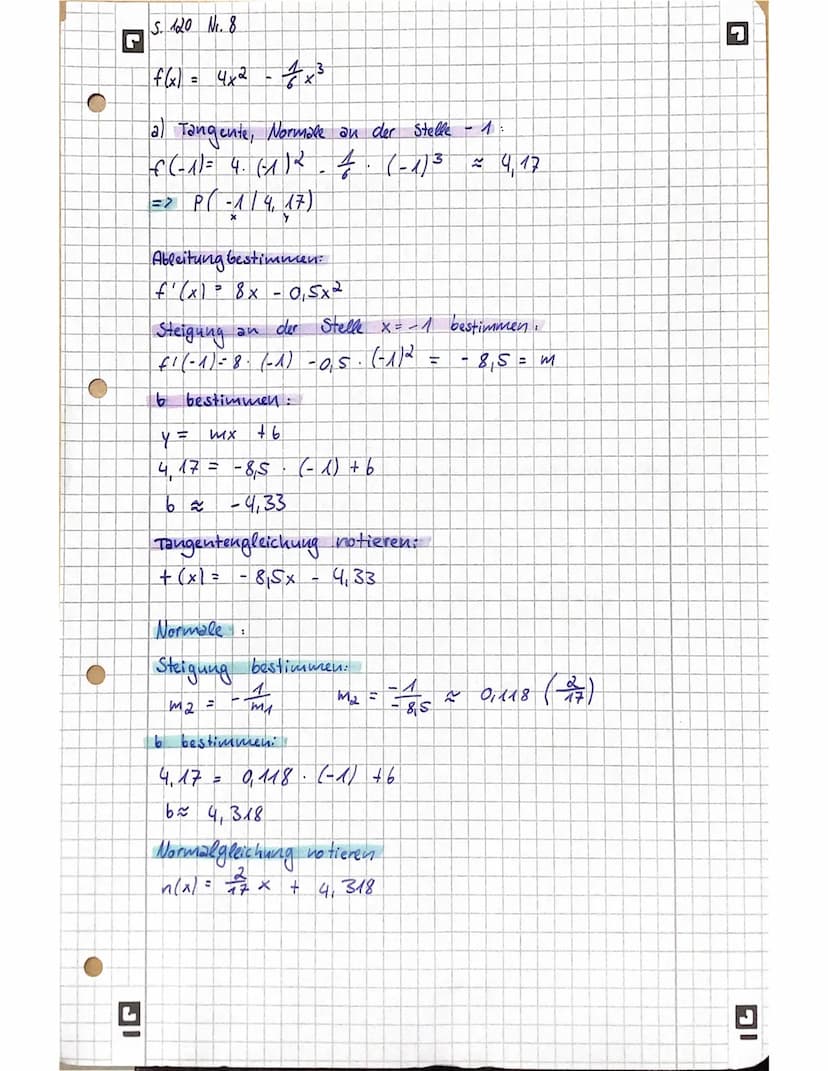 S. 120 Nr. 8
f(x) = 4x² - 1/6 x³
a) Tangente, Normale an der Stelle - 1:
f(-1) = 4 · (-1)² - 1/6 · (-1)³ ≈ 4,17
=> P( -1 / 4, 17)
x y
Ableitung bestimmen:
f'(x) = 8x - 0,5x²
Steigung an der Stelle x = -1 bestimmen:
f'(-1) = 8 · (-1) - 0,5 · (-1)² = - 8,5 = m
b bestimmen:
y = mx + b
4,17 = -8,5 · (-1) + b
b ≈ -4,33
Tangentengleichung notieren:
t(x) = - 8,5x - 4,33
Normale :
Steigung bestimmen:
m2 = - 1/m1 m2 = -1/-8,5 ≈ 0,118 (2/17)
b bestimmen:
4,17 = 0,118 · (-1) + b
b ≈ 4,318
Normalgleichung notieren
n(x) = 2/17 x + 4,318